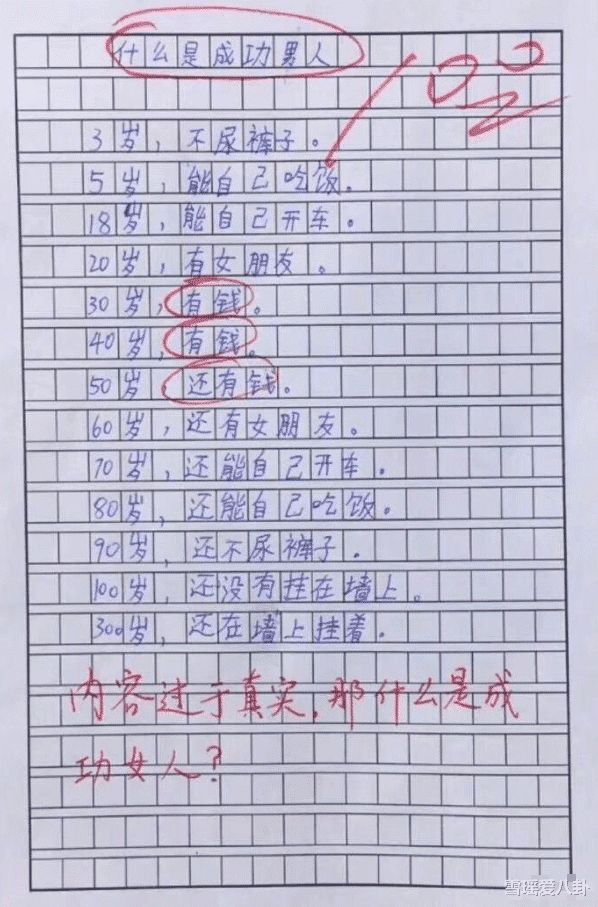 什么是成功男人
100
3岁，不尿裤子。
5岁，能自己吃饭。
18岁，能自己开车。
20岁，有女朋友。
30岁，有钱。
40岁，有钱。
50岁，还有钱。
60岁，还有女朋友。
70岁，还能自己开车。
80岁，还能自己吃饭。
90岁，还不尿裤子。
100岁，还没有挂在墙上。
300岁，还在墙上挂着。
内容过于真实，那什么是成
功女人？
雪瑶爱八卦